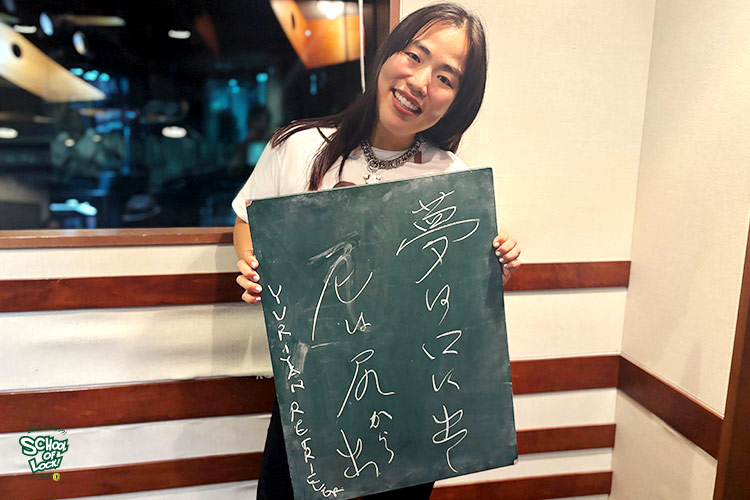 夢は口に出せ
屁は尻から出
YURIYAN RETRIEVER
SCHOOL
OF
LOCK!